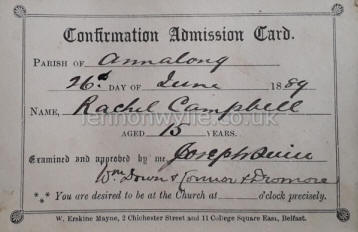 Confirmation Admission Card.
PARISH OF Annalong
26th DAY OF June 1889
NAME, Rachel Campbell
AGED 15 YEARS.
Examined and approved by me, Joseph Quin
Wm Down & Connor & Dromore
*** You are desired to be at the Church at o'clock precisely.
W. Erskine Mayne, 2 Chichester Street and 11 College Square East, Belfast.
lennonwylie.co.uk